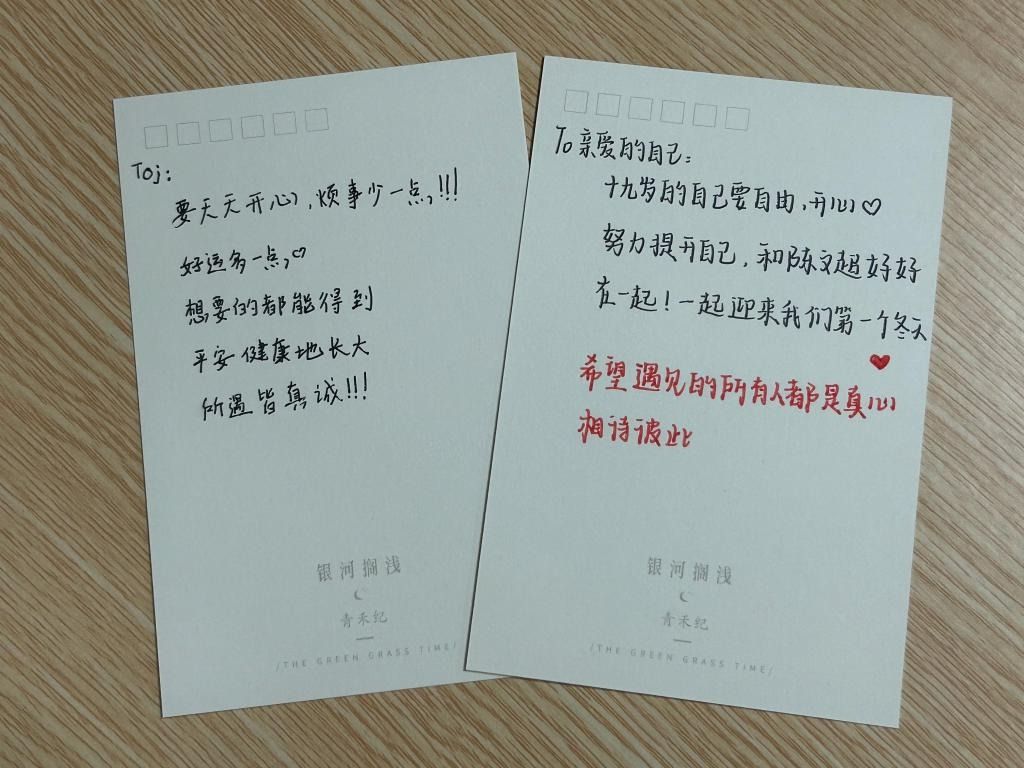 Toj:
要天天开心,烦事少一点,!!!
好运多一点,♡
想要的都能得到
平安健康地长大
所遇皆真诚!!!
银河搁浅
青禾纪
/THE GREEN GRASS TIME/
To 亲爱的自己:
十九岁的自己要自由,开心♡
努力提升自己,和陈文超好好
在一起!一起迎来我们第一个冬天
❤
希望遇见的所有人都是真心
相待彼此
银河搁浅
青禾纪
/THE GREEN GRASS TIME/